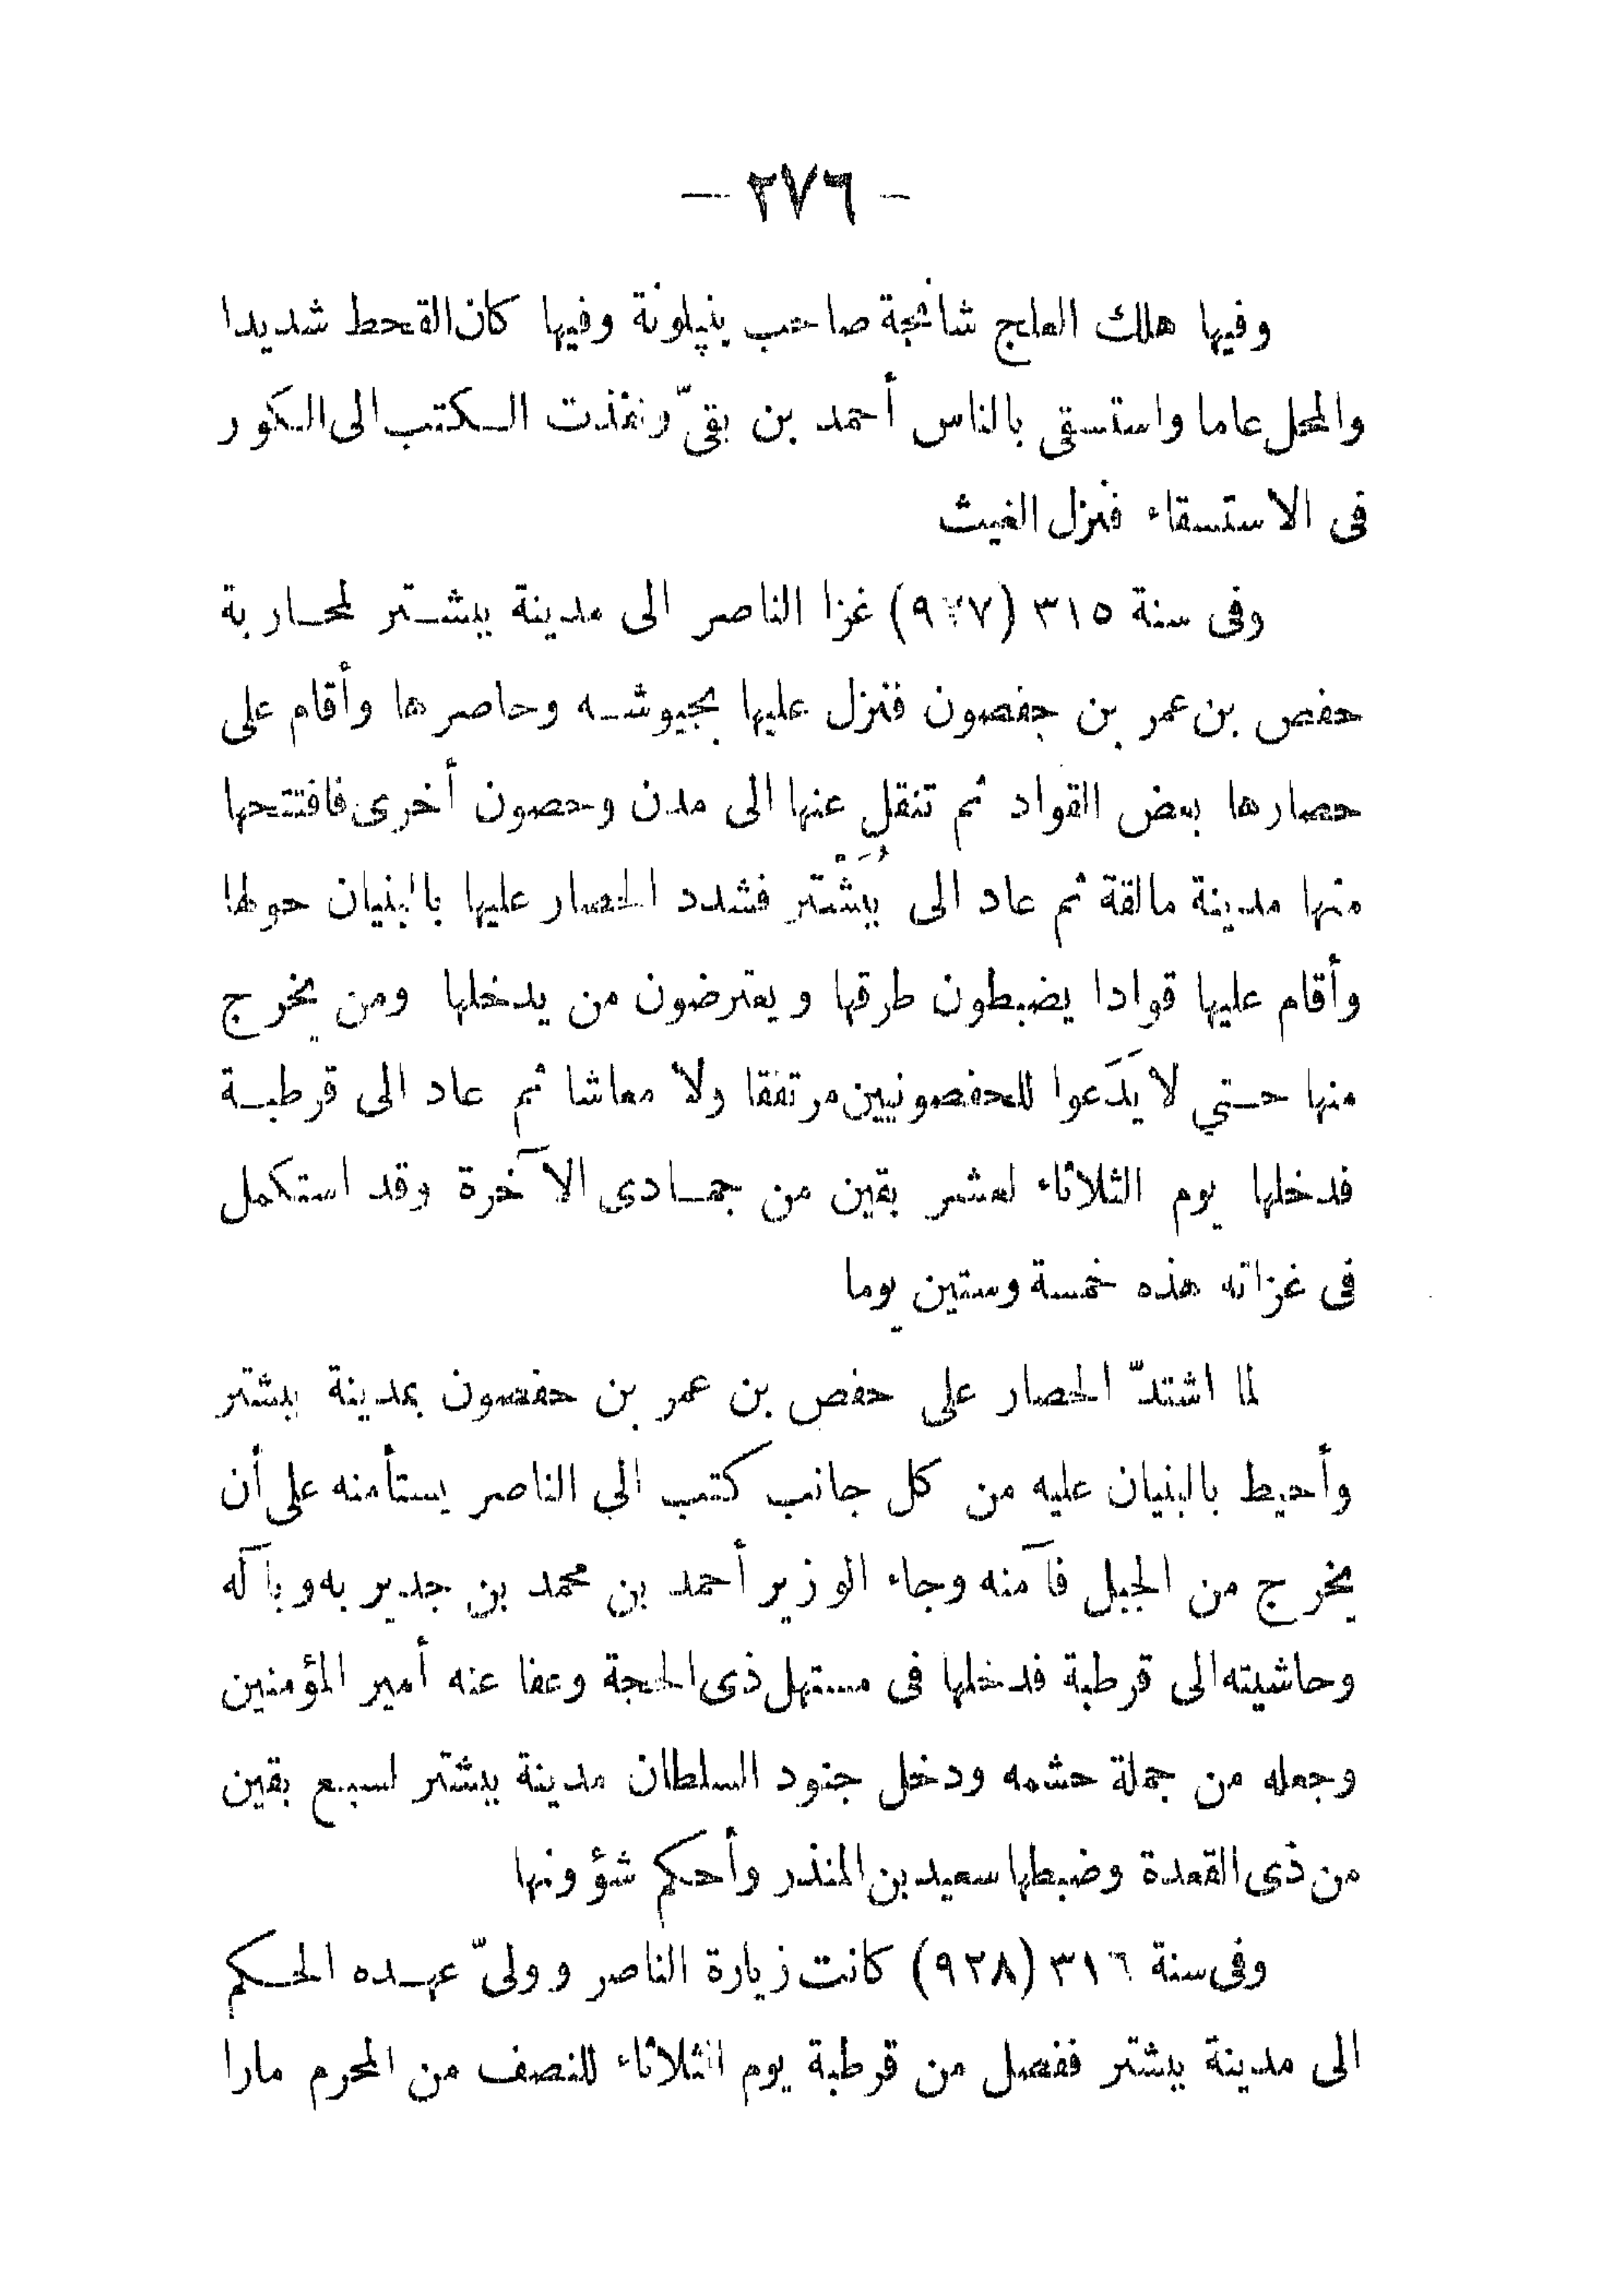 — ٢٧٦ —
وفيها هلك العلج شانجة صاحب ينپلونة وفيها كان القحط شديدا
والمحل عاما واستسقى بالناس أحمد بن بقىّ ونفذت الكتب الى الكور
فى الاستسقاء فنزل الغيث
وفى سنة ٣١٥ (٩٢٧) غزا الناصر الى مدينة ببشتر لمحاربة
حفص بن عمر بن حفصون فنزل عليها بجيوشه وحاصرها وأقام على
حصارها بعض القواد ثم تنقل عنها الى مدن وحصون أخرى فافتتحها
منها مدينة مالقة ثم عاد الى بُبَشْتر فشدد الحصار عليها بالبنيان حولها
وأقام عليها قوادا يضبطون طرقها ويعترضون من يدخلها ومن يخرج
منها حتي لا يَدَعوا للحفصونيين مرتفقا ولا معاشا ثم عاد الى قرطبة
فدخلها يوم الثلاثاء لعشر بقين من جمادى الآخرة وقد استكمل
فى غزاته هذه خمسة وستين يوما
لما اشتدّ الحصار على حفص بن عمر بن حفصون بمدينة ببشتر
وأحيط بالبنيان عليه من كل جانب كتب الى الناصر يستأمنه على أن
يخرج من الجبل فآمنه وجاء الوزير أحمد بن محمد بن جدير به وبآله
وحاشيته الى قرطبة فدخلها فى مستهل ذى الحجة وعفا عنه أمير المؤمنين
وجعله من جملة حشمه ودخل جنود السلطان مدينة ببشتر لسبع بقين
من ذى القعدة وضبطها سعيد بن المنذر وأحكم شؤونها
وفى سنة ٣١٦ (٩٢٨) كانت زيارة الناصر وولىّ عهده الحكم
الى مدينة ببشتر ففصل من قرطبة يوم الثلاثاء للنصف من المحرم مارا